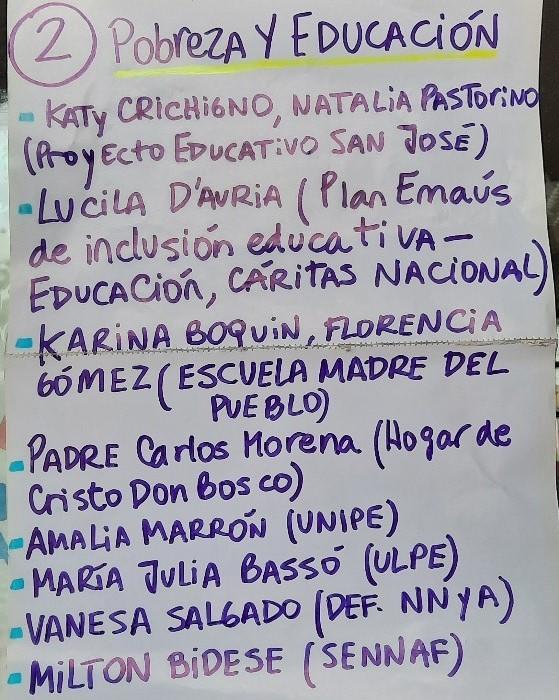 2 PobrezA Y EDUCACIÓN
- KATY CRICHIGNO, NATALIA PASTORINO
(Proyecto EDUCATIVO SAN JOSÉ)
- LUCILA D'AURIA (Plan Emaús
de inclusión educatiVA -
EDUCACIÓN, CÁRITAS NACIONAL)
- KARINA BOQUIN, FLORENCIA
GÓMEZ (ESCUELA MADRE DEL
PUEBLO)
- PADRE Carlos Morena (Hogar de
Cristo Don Bosco)
- AMALIA MARRÓN (UNIPE)
- MARÍA JULIA BASSÓ (ULPE)
- VANESA SALGADO (DEF. NNyA)
- MILTON BIDESE (SENNAF)